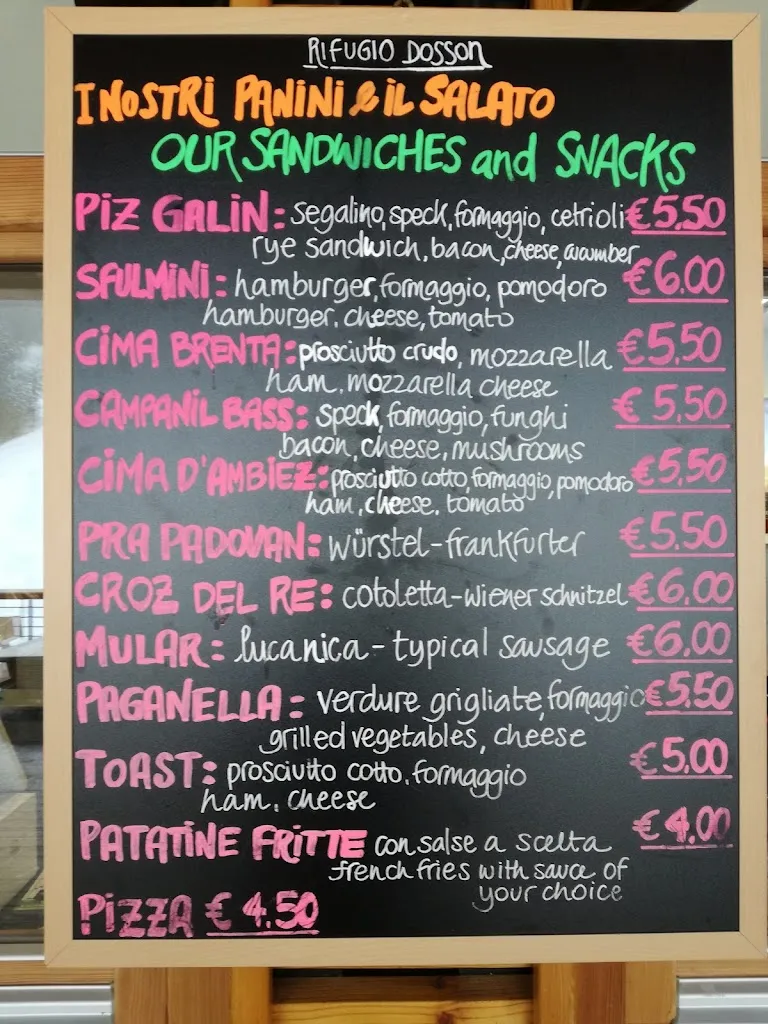 RIFUGIO DOSSON
I NOSTRI PANINI e IL SALATO
OUR SANDWICHES and SNACKS
PIZ GALIN: segalino, speck, formaggio, cetrioli €5,50
rye sandwich, bacon, cheese, cucumber
SFULMINI: hamburger, formaggio, pomodoro €6.00
hamburger, cheese, tomato
CIMA BRENTA: prosciutto crudo, mozzarella €5,50
ham, mozzarella cheese
CAMPANIL BASS: speck, formaggio, funghi €5,50
bacon, cheese, mushrooms
CIMA D'AMBIEZ: prosciutto cotto, formaggio, pomodoro €5,50
ham, cheese, tomato
PRA PADOVAN: würstel-frankfurter €5,50
CROZ DEL RE: cotoletta-wiener schnitzel €6,00
MULAR: lucanica - typical sausage €6,00
PAGANELLA: verdure grigliate, formaggio €5,50
grilled vegetables, cheese
TOAST: prosciutto cotto, formaggio €5,00
ham, cheese
PATATINE FRITTE con salse a scelta €4,00
french fries with sauce of
your choice
PIZZA €4.50